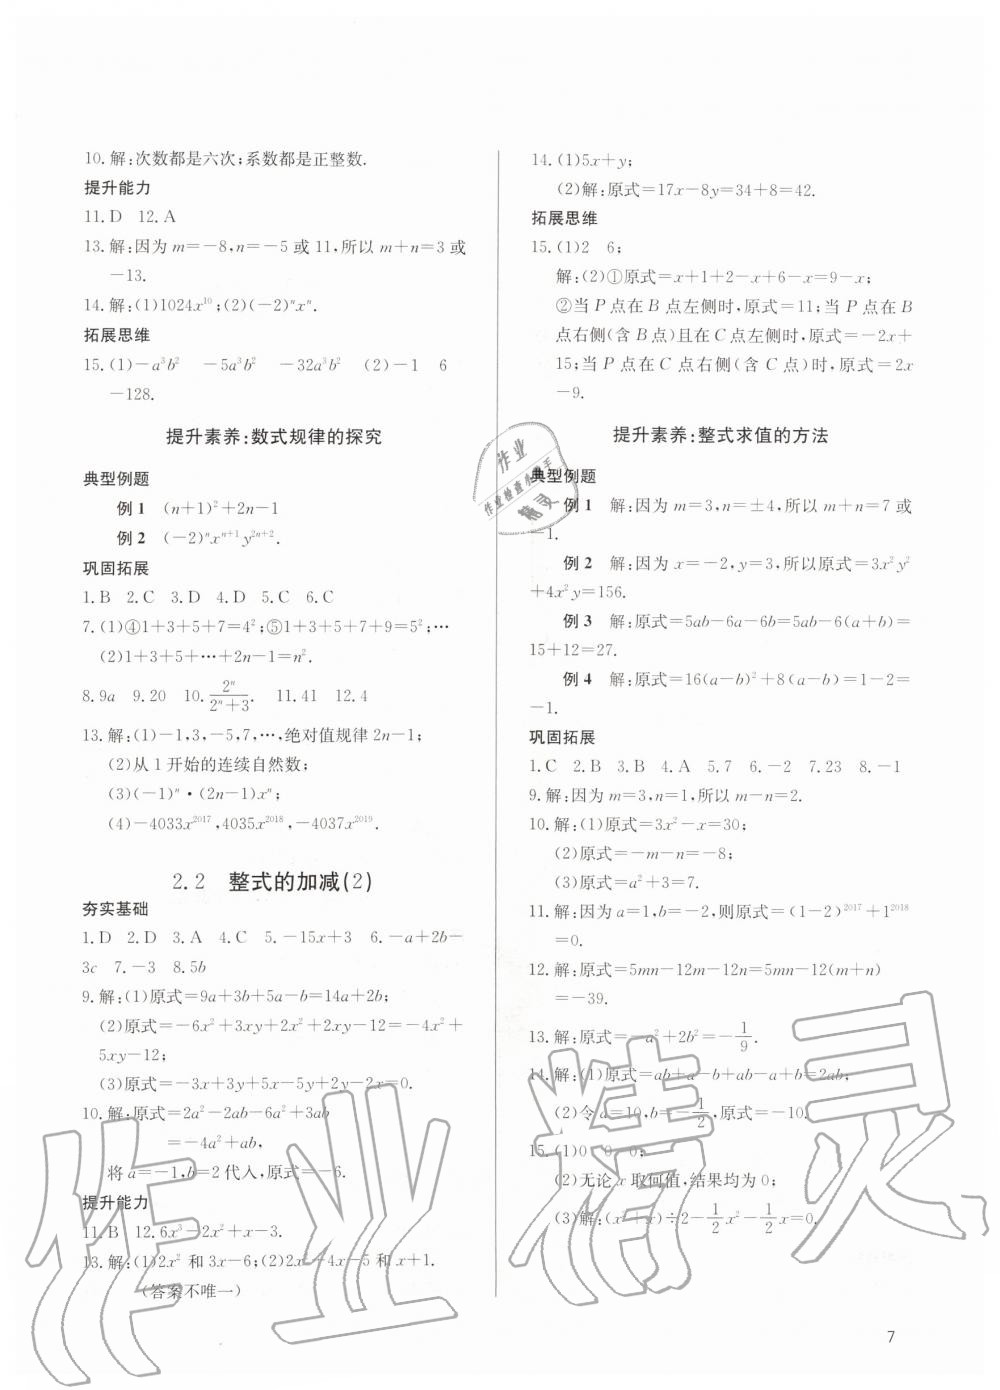 10. 解:次数都是六次;系数都是正整数.
提升能力
11. D 12. A
13. 解:因为 m=-8,n=-5 或 11,所以 m+n=3 或
-13.
14. 解:(1)1024x¹⁰;(2)(-2)ⁿxⁿ.
拓展思维
15. (1)-a³b² -5a³b² -32a³b² (2)-1 6
-128.
提升素养:数式规律的探究
典型例题
例 1 (n+1)²+2n-1
例 2 (-2)ⁿxⁿ⁺¹y²ⁿ⁺².
巩固拓展
1. B 2. C 3. D 4. D 5. C 6. C
7. (1)④1+3+5+7=4²;⑤1+3+5+7+9=5²;…
(2)1+3+5+…+2n-1=n².
8. 9a 9. 20 10. 2ⁿ/(2ⁿ+3). 11. 41 12. 4
13. 解:(1)-1,3,-5,7,…,绝对值规律 2n-1;
(2)从 1 开始的连续自然数;
(3)(-1)ⁿ·(2n-1)xⁿ;
(4)-4033x²⁰¹⁷,4035x²⁰¹⁸,-4037x²⁰¹⁹.
2.2 整式的加减(2)
夯实基础
1. D 2. D 3. A 4. C 5. -15x+3 6. -a+2b-
3c 7. -3 8. 5b
9. 解:(1)原式=9a+3b+5a-b=14a+2b;
(2)原式=-6x²+3xy+2x²+2xy-12=-4x²+
5xy-12;
(3)原式=-3x+3y+5x-3y-2x=0.
10. 解:原式=2a²-2ab-6a²+3ab
=-4a²+ab,
将 a=-1,b=2 代入,原式=-6.
提升能力
11. B 12. 6x³-2x²+x-3.
13. 解:(1)2x² 和 3x-6;(2)2x²-4x-5 和 x+1.
(答案不唯一)
14. (1)5x+y;
(2)解:原式=17x-8y=34+8=42.
拓展思维
15. (1)2 6;
解:(2)①原式=x+1+2-x+6-x=9-x;
②当 P 点在 B 点左侧时,原式=11;当 P 点在 B
点右侧(含 B 点)且在 C 点左侧时,原式=-2x+
15;当 P 点在 C 点右侧(含 C 点)时,原式=2x
-9.
提升素养:整式求值的方法
典型例题
例 1 解:因为 m=3,n=±4,所以 m+n=7 或
-1.
例 2 解:因为 x=-2,y=3,所以原式=3x²y²
+4x²y=156.
例 3 解:原式=5ab-6a-6b=5ab-6(a+b)=
15+12=27.
例 4 解:原式=16(a-b)²+8(a-b)=1-2=
-1.
巩固拓展
1. C 2. B 3. B 4. A 5. 7 6. -2 7. 23 8. -1
9. 解:因为 m=3,n=1,所以 m-n=2.
10. 解:(1)原式=3x²-x=30;
(2)原式=-m-n=-8;
(3)原式=a²+3=7.
11. 解:因为 a=1,b=-2,则原式=(1-2)²⁰¹⁷+1²⁰¹⁸
=0.
12. 解:原式=5mn-12m-12n=5mn-12(m+n)
=-39.
13. 解:原式=-a²+2b²=-1/9.
14. 解:(1)原式=ab+a-b+ab-a+b=2ab;
(2)令 a=10,b=-1/2,原式=-10.
15. (1)0 0 0;
(2)无论 x 取何值,结果均为 0;
(3)解:(x²+x)÷2-1/2x²-1/2x=0.
7
作业
作业检查小帮手
精灵
作业精灵